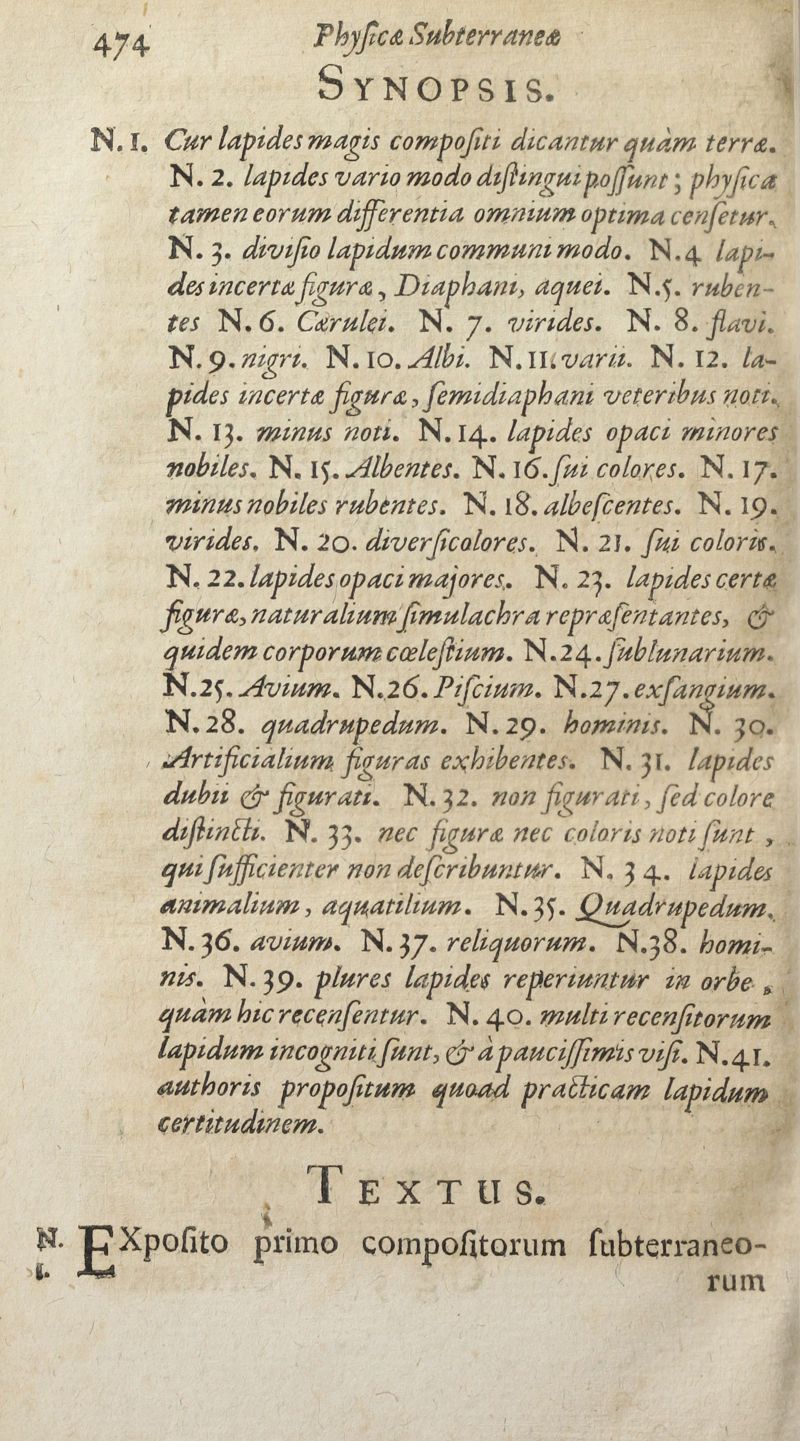 474 Phyſicæ Subterraneæ
SYNOPSIS.
N. 1. Cur lapides magis compoſiti dicantur quàm terræ.
N. 2. lapides vario modo diſtingui poſſunt; phyſica
tamen eorum differentia omnium optima cenſetur.
N. 3. diviſio lapidum communi modo. N. 4 lapi-
des incertæ figuræ, Diaphani, aquei. N. 5. ruben-
tes N. 6. Cærulei. N. 7. virides. N. 8. flavi.
N. 9. nigri. N. 10. Albi. N. 11. varii. N. 12. la-
pides incertæ figuræ, ſemidiaphani veteribus noti.
N. 13. minus noti. N. 14. lapides opaci minores
nobiles. N. 15. Albentes. N. 16. ſui colores. N. 17.
minus nobiles rubentes. N. 18. albeſcentes. N. 19.
virides. N. 20. diverſicolores. N. 21. ſui coloris.
N. 22. lapides opaci majores. N. 23. lapides certæ
figuræ, naturalium ſimulachra repræſentantes, &
quidem corporum cœleſtium. N. 24. ſublunarium.
N. 25. Avium. N. 26. Piſcium. N. 27. exſangium.
N. 28. quadrupedum. N. 29. hominis. N. 30.
Artificialium figuras exhibentes. N. 31. lapides
dubii & figurati. N. 32. non figurati, ſed colore
diſtincti. N. 33. nec figuræ nec coloris noti ſunt,
qui ſufficienter non deſcribuntur. N. 34. lapides
animalium, aquatilium. N. 35. Quadrupedum.
N. 36. avium. N. 37. reliquorum. N. 38. homi-
nis. N. 39. plures lapides reperiuntur in orbe,
quàm hic recenſentur. N. 40. multi recenſitorum
lapidum incogniti ſunt, & à pauciſſimis viſi. N. 41.
authoris propoſitum quoad practicam lapidum
certitudinem.
TEXTUS.
N. 1. EXpoſito primo compoſitorum ſubterraneo-
rum